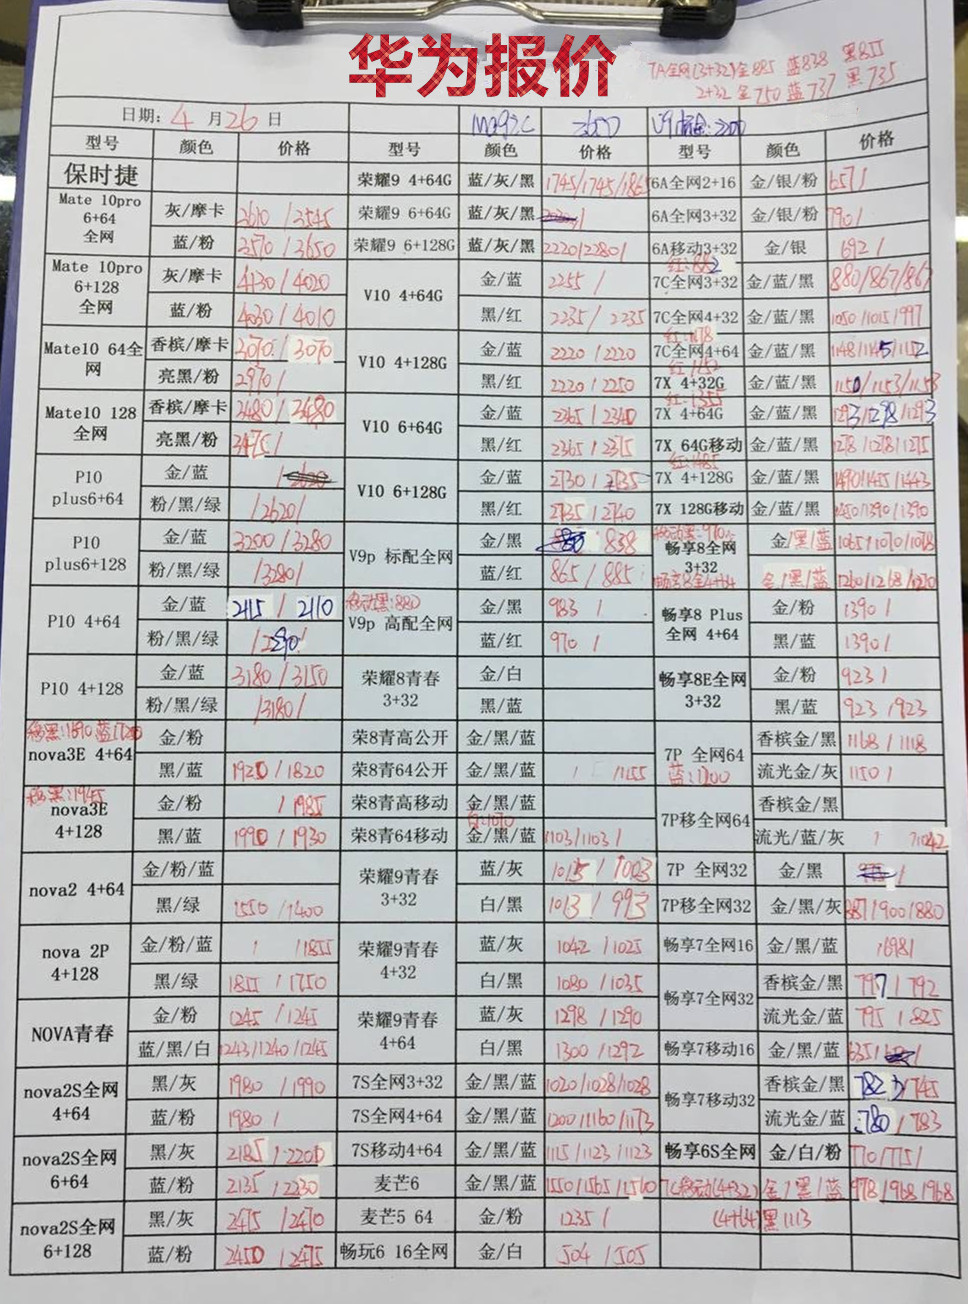 华为报价
7A全网(3+32)金885 蓝838 黑855
2+32 金750 蓝737 黑735
日期: 4 月 26 日
型号 颜色 价格 型号 颜色 价格 型号 颜色 价格
保时捷 荣耀9 4+64G 蓝/灰/黑 6A全网2+16 金/银/粉 657/
Mate 10pro 6+64 全网 灰/摩卡 2610/3545 荣耀9 6+64G 蓝/灰/黑 6A全网3+32 金/银/粉 790/
蓝/粉 3570/3650 荣耀9 6+128G 蓝/灰/黑 2220/2280/ 6A移动3+32 金/银 692/
Mate 10pro 6+128 全网 灰/摩卡 4130/4020 V10 4+64G 金/蓝 2255/ 7C全网3+32 金/蓝/黑 880/867/867
蓝/粉 4030/4010 黑/红 2235/2235 7C全网4+32 金/蓝/黑 1050/1015/997
Mate10 64全网 香槟/摩卡 3070/3070 V10 4+128G 金/蓝 2220/2220 7C全网4+64 金/蓝/黑 1148/1145/1152
亮黑/粉 2970/ 黑/红 2220/2250 7X 4+32G 金/蓝/黑 1150/1153/1153
Mate10 128全网 香槟/摩卡 3480/3480 V10 6+64G 金/蓝 2365/2340 7X 4+64G 金/蓝/黑 1293/1298/1293
亮黑/粉 3475/ 黑/红 2365/2375 7X 64G移动 金/蓝/黑 1278/1278/1275
P10 plus6+64 金/蓝 V10 6+128G 金/蓝 2730/2735 7X 4+128G 金/蓝/黑 1490/1455/1443
粉/黑/绿 /2620/ 黑/红 2735/2740 7X 128G移动 金/蓝/黑 1450/1390/1390
P10 plus6+128 金/蓝 3200/3280 V9p 标配全网 金/黑 /838 畅享8全网 3+32 金/黑/蓝 1065/1070/1078
粉/黑/绿 /3280/ 蓝/红 865/885 金/黑/蓝 1260/1268/1270
P10 4+64 金/蓝 2115/2110 移动黑:880 V9p 高配全网 金/黑 983/ 畅享8 Plus 全网 4+64 金/粉 1390/
粉/黑/绿 蓝/红 970/ 黑/蓝 1390/
P10 4+128 金/蓝 3180/3150 荣耀8青春 3+32 金/白 畅享8E全网 3+32 金/粉 923/
粉/黑/绿 /3180/ 黑/蓝 黑/蓝 923/923
nova3E 4+64 金/粉 荣8青高公开 金/黑/蓝 7P 全网64 蓝:1200 香槟金/黑 1168/1118
黑/蓝 1920/1820 荣8青64公开 金/黑/蓝 / 1155 流光金/灰 1150/
移黑:1945 nova3E 4+128 金/粉 /1985 荣8青高移动 金/黑/蓝 7P移全网64 香槟金/黑
黑/蓝 1990/1930 荣8青64移动 金/黑/蓝 1103/1103/ 流光/蓝/灰 /1042
nova2 4+64 金/粉/蓝 荣耀9青春 3+32 蓝/灰 1015/1003 7P 全网32 金/黑
黑/绿 1550/1400 白/黑 1013/993 7P移全网32 金/黑/灰 887/900/880
nova 2P 4+128 金/粉/蓝 / /1855 荣耀9青春 4+32 蓝/灰 1042/1025 畅享7全网16 金/黑/蓝 /698/
黑/绿 1855/1750 白/黑 1080/1035 畅享7全网32 香槟金/黑 797/792
NOVA青春 金/粉 1245/1245 荣耀9青春 4+64 蓝/灰 1298/1290 流光金/蓝 795/825
蓝/黑/白 1243/1240/1245 白/黑 1300/1292 畅享7移动16 金/黑/蓝
nova2S全网 4+64 黑/灰 1980/1990 7S全网3+32 金/黑/蓝 1020/1028/1028 畅享7移动32 香槟金/黑
蓝/粉 1980/ 7S全网4+64 金/黑/蓝 1200/1160/1173 流光金/蓝 780/783
nova2S全网 6+64 黑/灰 2185/2200 7S移动4+64 金/黑/蓝 1115/1123/1123 畅享6S全网 金/白/粉 770/775/
蓝/粉 2135/2230 麦芒6 金/黑/蓝 7C移动(4+32) 金/黑/蓝 978/968/968
nova2S全网 6+128 黑/灰 2475/2470 麦芒5 64 金/粉 1235/ (4+64)黑1113
蓝/粉 2450/2475 畅玩6 16全网 金/白 504/505